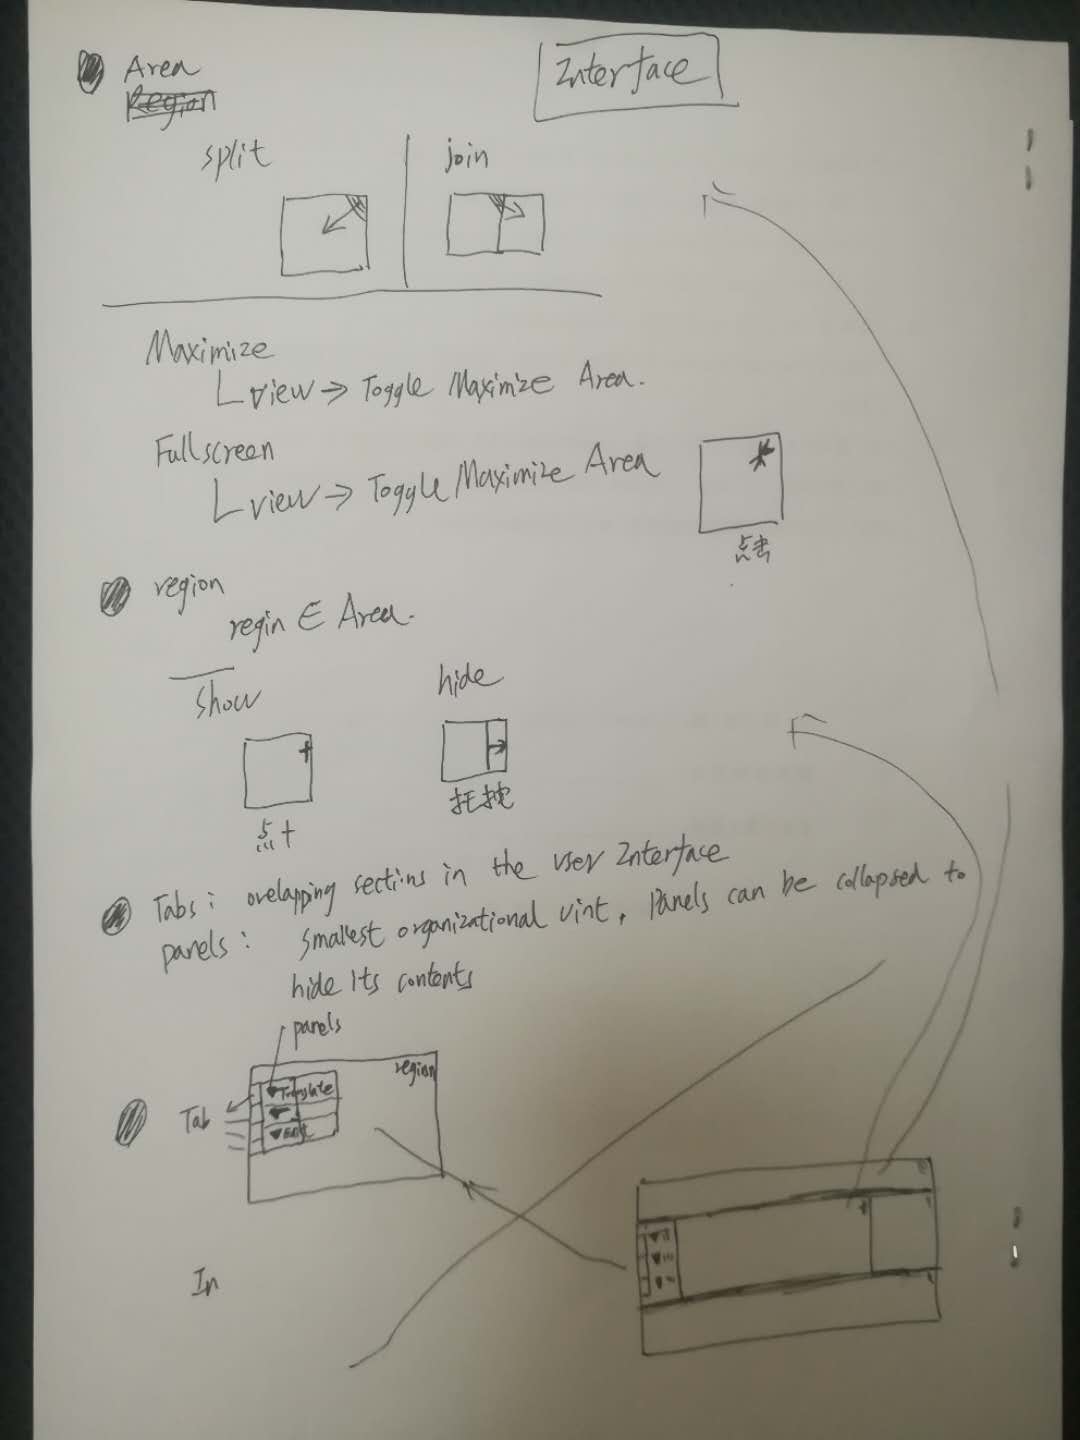 Interface
Area
Region
split
join
Maximize
view → Toggle Maximize Area.
Fullscreen
view → Toggle Maximize Area
点击
region
regin ∈ Area.
show
hide
点+
Tabs: ovelapping sections in the user Interface
panels: smallest organizational uint, Panels can be collapsed to
hide Its contents
panels
region
Translate
Tab
In